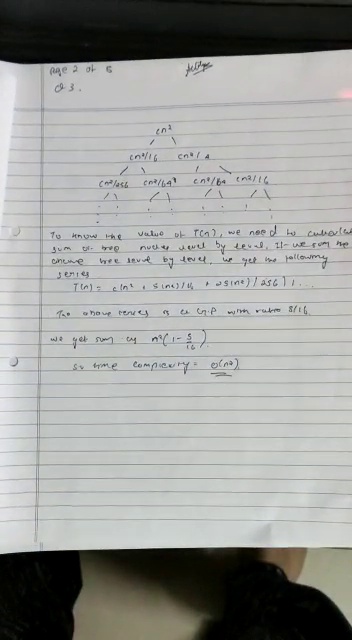 Page 2 of 5
Q 3.
cn²
cn²/16 cn²/4
cn²/256 cn²/64 cn²/64 cn²/16
To know the value of T(n), we need to calculate
sum of tree nodes level by level, If we sum the
above tree level by level, we get the following
series
T(n) = c(n² + 5(n²)/16 + 25(n²)/256) + ...
The above series is a G.P with ratio 5/16
we get sum as n²(1 - 5/16)
so time complexity = O(n²)